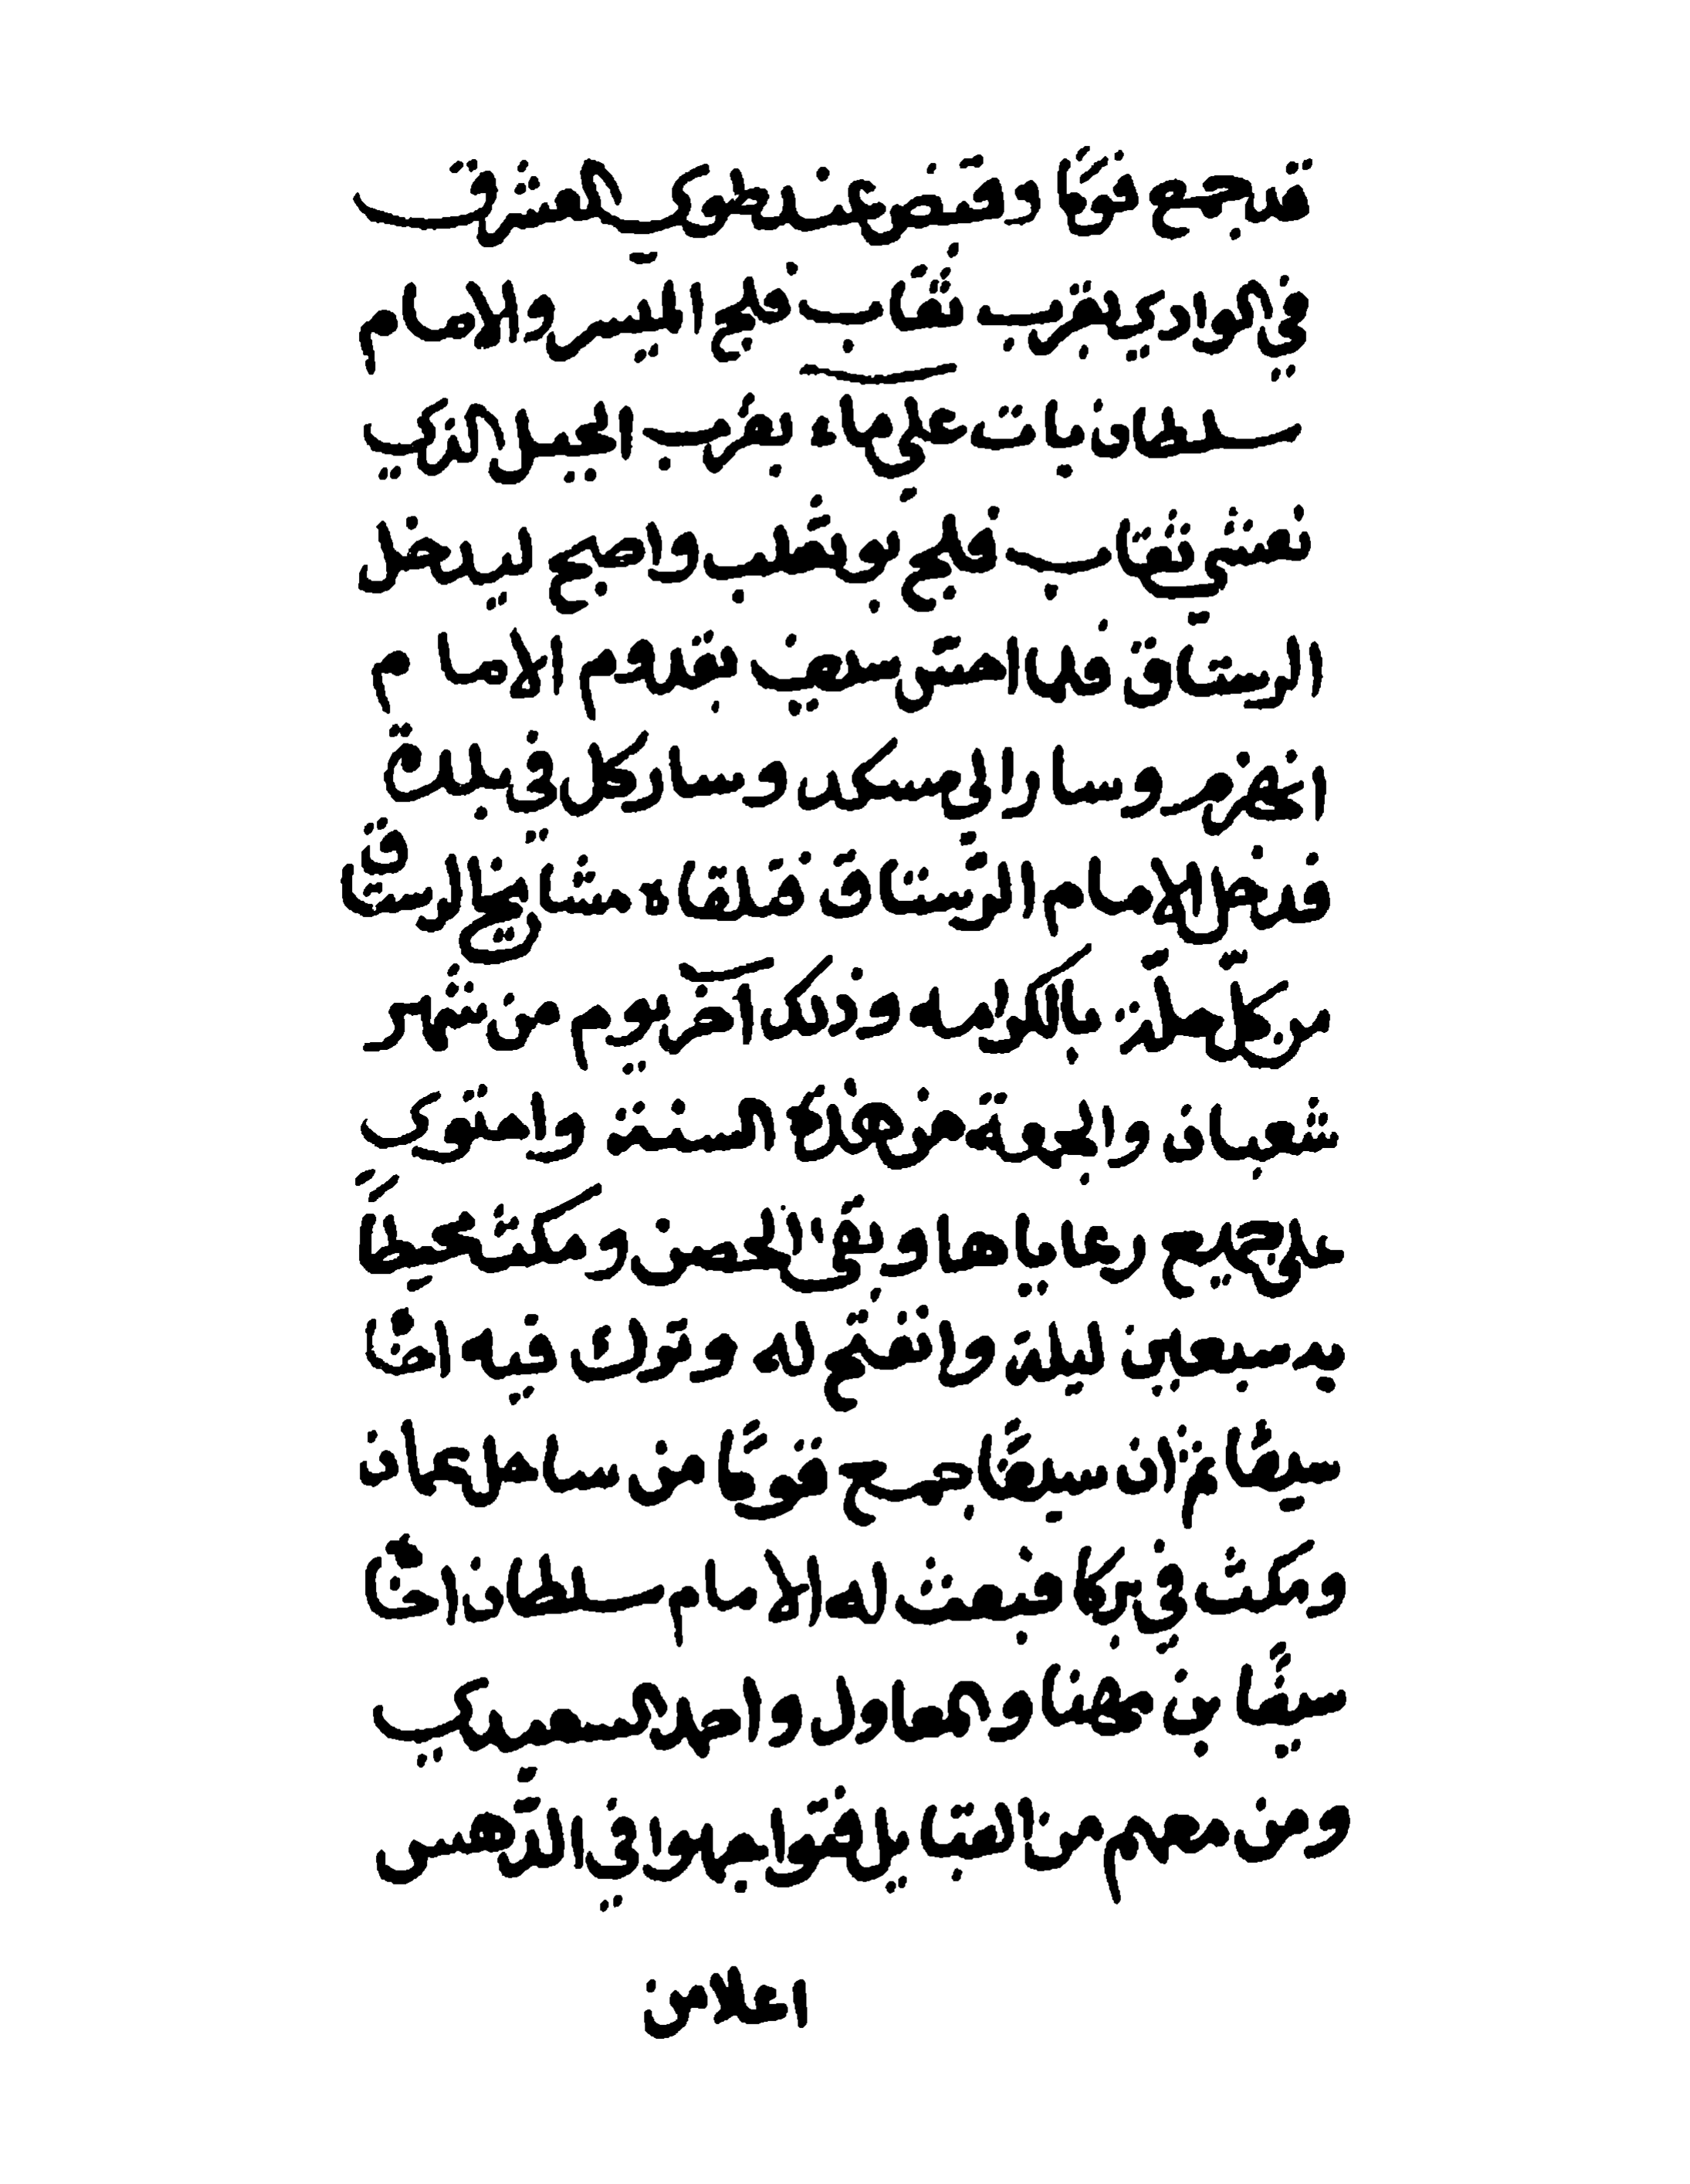 قد جمع قومًا وقبض عند طوي العشرق
في الوادي بقرب ثقاب فلج الميسر والامام
سلطان بات على ماء بقرب الجبل الذي
نعشي ثقاب فلج بو ثعلب واصبح ليدخل
الرستاق فلما احسّ سيف بقدوم الامام
انهزم وسار الى مسكد وسار كل في بلدة
فدخل الامام الرّستاق فتلقاه مشايخ الرستاق
من كلّ حلّة بالكرامه وذلك آخر يوم من شهر
شعبان والجمعة من هذه السنة واحتوى
على جميع رعاياها وبقى الحصن ومكث محيطًا
به سبعين ليلة وانفتح له وترك فيه اخًا
سيفًا ثم ان سيفًا جمع قومًا من ساحل عمان
ومكث في بركا فبعث له الامام سلطان اخًا
سيفًا بن مهنا والمعاول واحمد السعيدي
ومن معهم من القبايل فتواجهوا في الدّهس
اعلا من